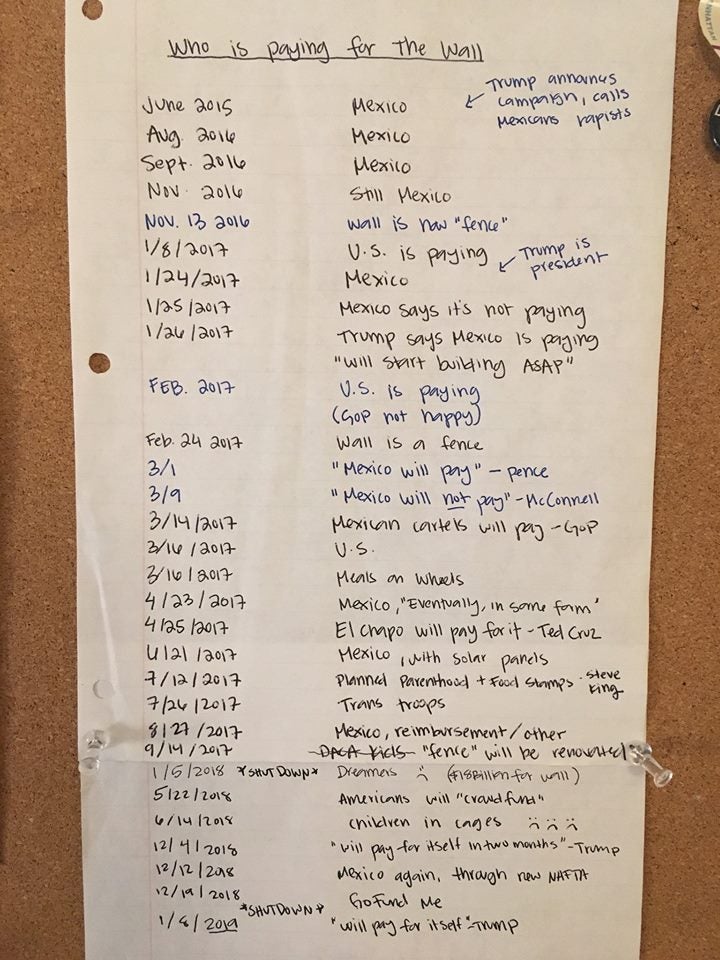 Who is paying for The Wall
June 2015 Mexico ← Trump announces campaign, calls Mexicans rapists
Aug. 2016 Mexico
Sept. 2016 Mexico
Nov. 2016 Still Mexico
Nov. 13 2016 Wall is now "fence"
1/8/2017 U.S. is paying
1/24/2017 Mexico ← Trump is president
1/25/2017 Mexico says it's not paying
1/26/2017 Trump says Mexico is paying
"will start building ASAP"
FEB. 2017 U.S. is paying
(GOP not happy)
Feb. 24 2017 Wall is a fence
3/1 "Mexico will pay" - pence
3/9 "Mexico will not pay" - McConnell
3/14/2017 Mexican cartels will pay - GOP
3/16/2017 U.S.
3/16/2017 Meals on Wheels
4/23/2017 Mexico, "Eventually, in some form"
4/25/2017 El Chapo will pay for it - Ted Cruz
6/21/2017 Mexico, with solar panels
7/12/2017 Planned Parenthood + Food Stamps - Steve King
7/26/2017 Trans troops
8/27/2017 Mexico, reimbursement/other
9/14/2017 DACA Kids "fence" will be renovated"
1/5/2018 *SHUTDOWN* Dreamers :( ($18Billion for wall)
5/22/2018 Americans will "crowdfund"
6/14/2018 children in cages :( :( :(
12/4/2018 "will pay for itself in two months" - Trump
12/12/2018 Mexico again, through new NAFTA
12/19/2018 GoFund Me
*SHUTDOWN*
1/8/2019 "will pay for itself" - Trump
MANHATTAN